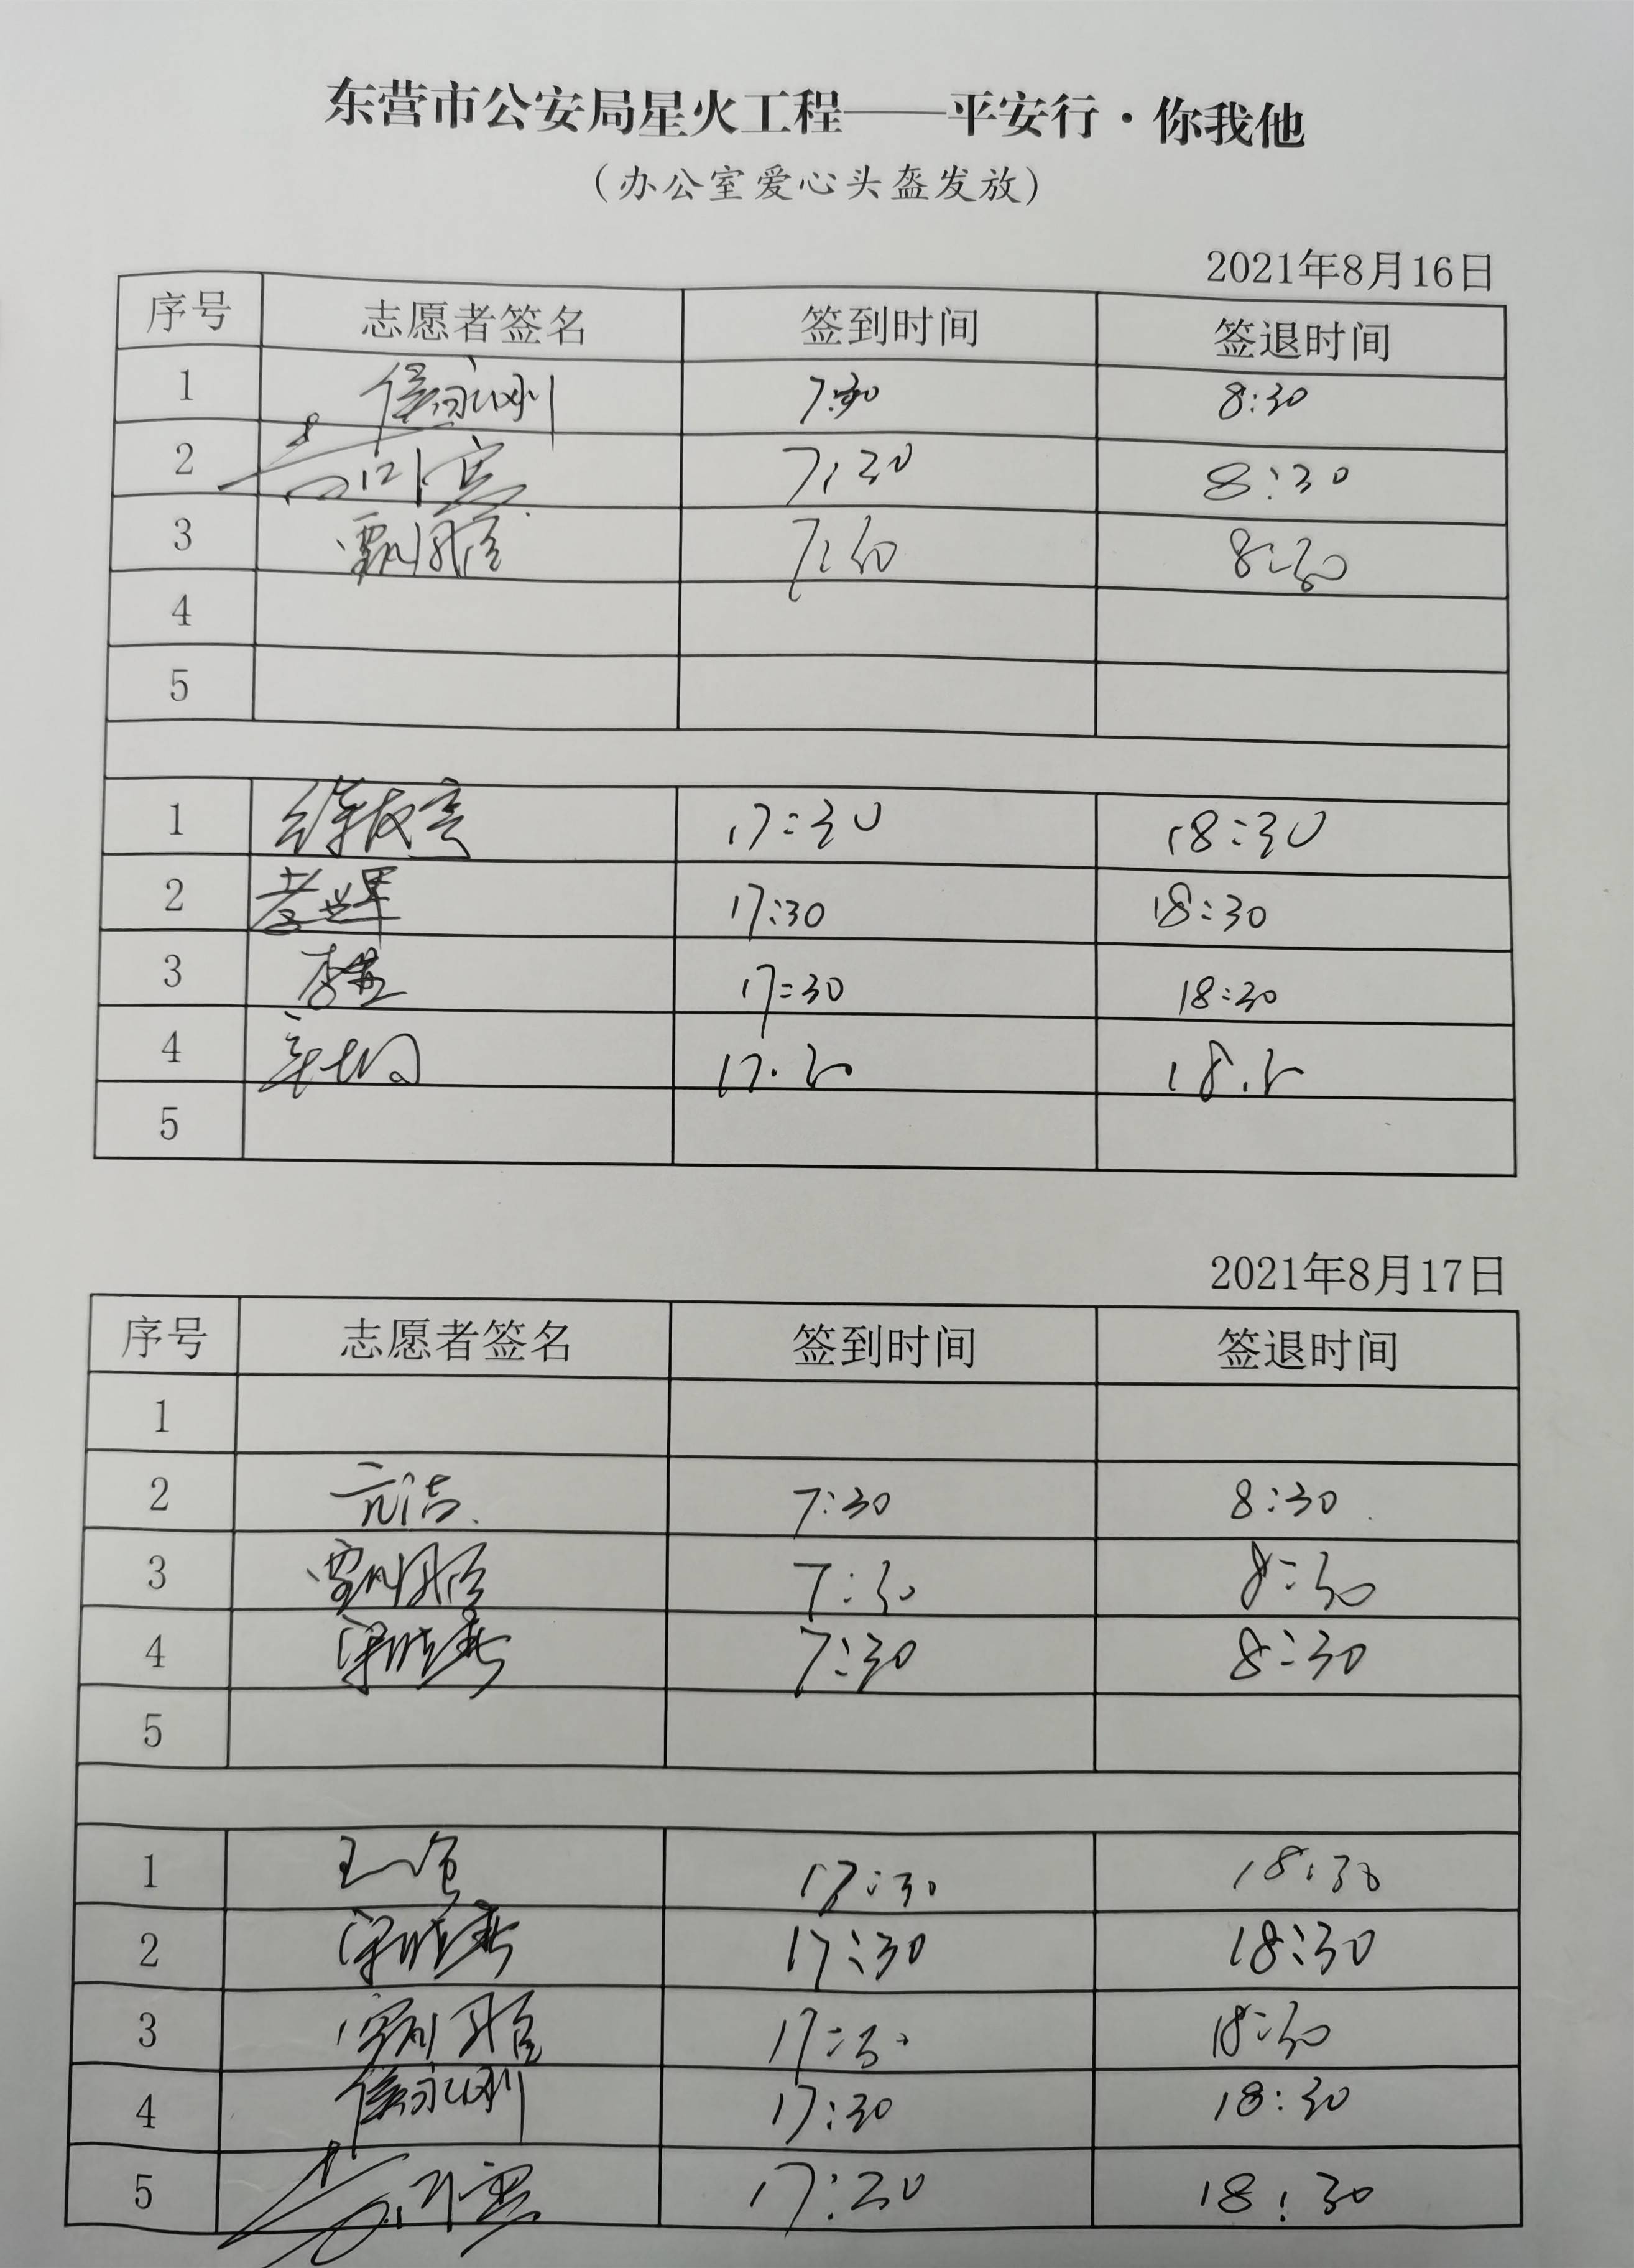 东营市公安局星火工程——平安行·你我他
（办公室爱心头盔发放）
2021年8月16日
序号 志愿者签名 签到时间 签退时间
1 侯永刚 7:30 8:30
2 7:30 8:30
3 7:30 8:30
4
5
1 17:30 18:30
2 17:30 18:30
3 17:30 18:30
4 17.30 18.30
5
2021年8月17日
序号 志愿者签名 签到时间 签退时间
1
2 亓洁 7:30 8:30
3 7:30 8:30
4 7:30 8:30
5
1 17:30 18:30
2 17:30 18:30
3 17:30 18:30
4 侯永刚 17:30 18:30
5 17:30 18:30